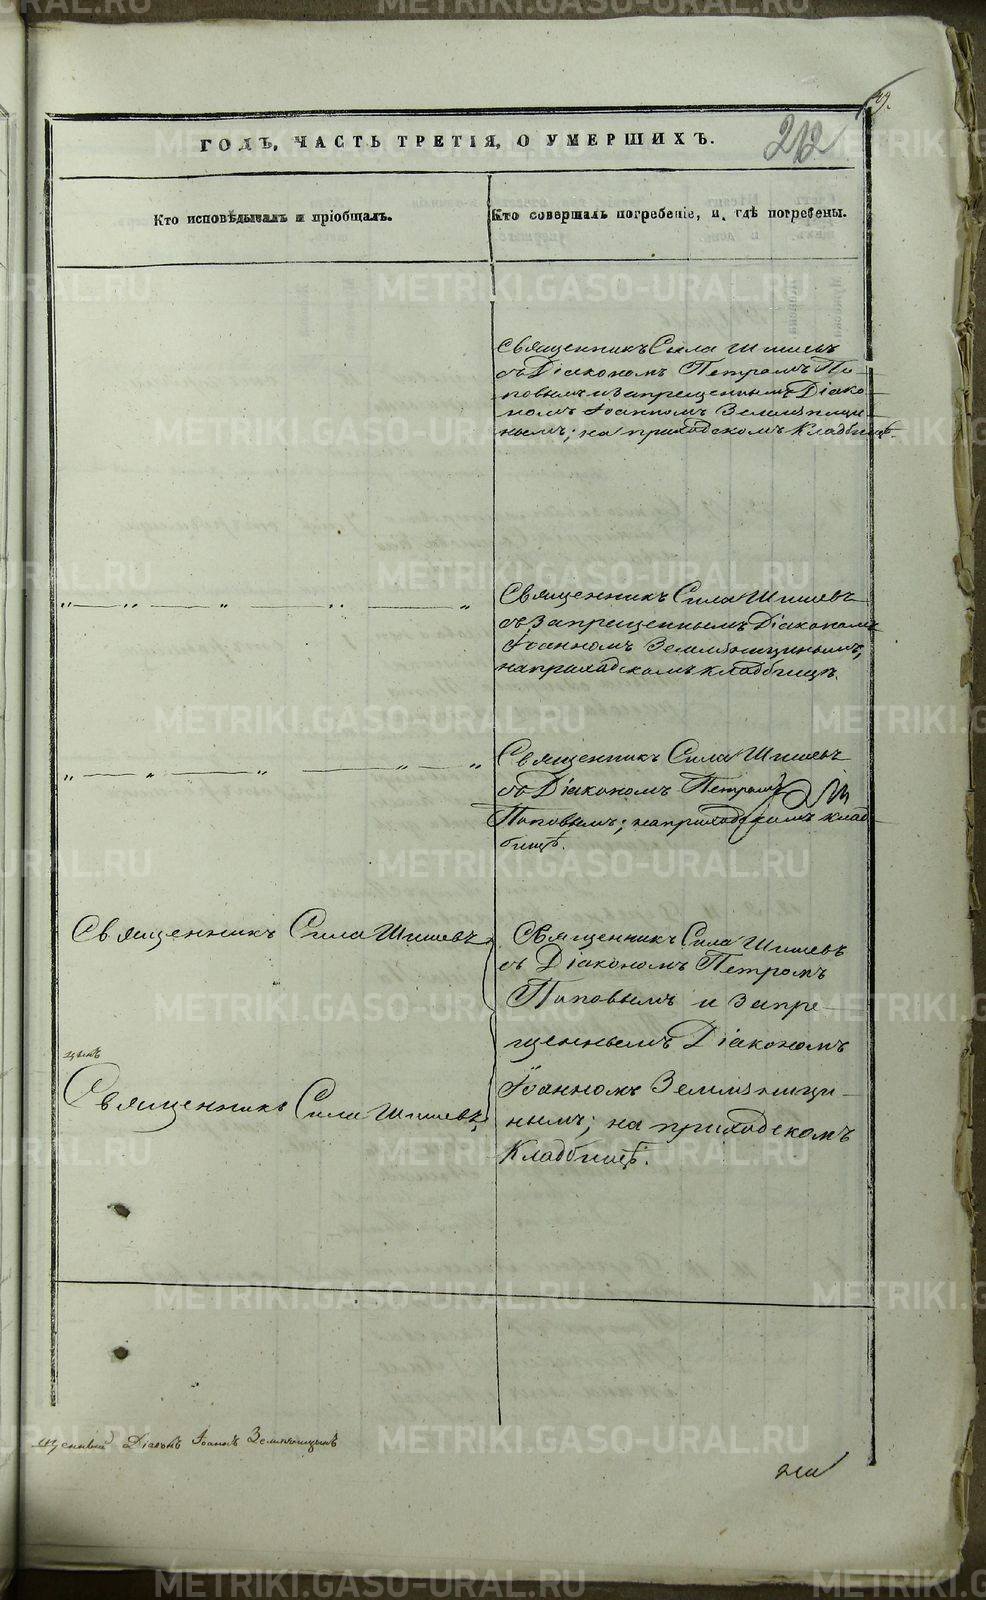 ГОДЪ, ЧАСТЬ ТРЕТІЯ, О УМЕРШИХЪ.
212
Кто исповѣдывалъ и пріобщалъ.
Кто совершалъ погребеніе, и гдѣ погребены.
Священникъ Сила Шишевъ
съ Діакономъ Петромъ По-
повымъ и запрещеннымъ Діако-
номъ Іоанномъ Земляницы-
нымъ; на приходскомъ кладбищѣ.
Священникъ Сила Шишевъ
съ запрещеннымъ Діакономъ
Іоанномъ Земляницынымъ,
на приходскомъ кладбищѣ.
Священникъ Сила Шишевъ
съ Діакономъ Петромъ
Поповымъ; на приходскомъ клад-
бищѣ.
Священникъ Сила Шишевъ
Священникъ Сила Шишевъ
съ Діакономъ Петромъ
Поповымъ и запре-
щеннымъ Діакономъ
Священникъ Сила Шишевъ
Іоанномъ Земляницы-
нымъ; на приходскомъ
кладбищѣ.
щенный Діаконъ Іоаннъ Земляницынъ
METRIKI.GASO-URAL.RU